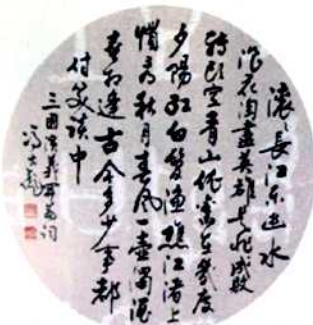 滚〻長江东逝水
浪花淘盡英雄是非成敗
转头空青山依舊在幾度
夕陽红白髮渔樵江渚上
惯看秋月春风一壶濁酒
喜相逢古今多少事都
付笑谈中
三国演義开篇词
冯大彪